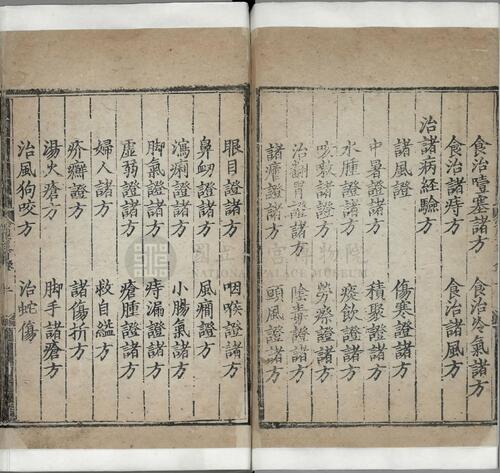 食治噎塞諸方 食治冷氣諸方
食治諸痔方 食治諸風方
治諸病經驗方
諸風證 傷寒證諸方
中暑證諸方 積聚證諸方
水腫證諸方 痰飲證諸方
咳嗽證諸方 勞瘵證諸方
治翻胃諸方 陰毒證諸方
諸瘧證諸方 頭風證諸方
眼目證諸方 咽喉證諸方
鼻衂證諸方 風癇證方
瀉痢證諸方 小腸氣諸方
脚氣證諸方 痔漏證諸方
虛弱證諸方 瘡腫證諸方
婦人諸方 救自縊方
疥癬證諸方 諸傷折方
湯火瘡方 脚手諸瘡方
治風狗咬方 治蛇傷
國立故宮博物院
NATIONAL PALACE MUSEUM